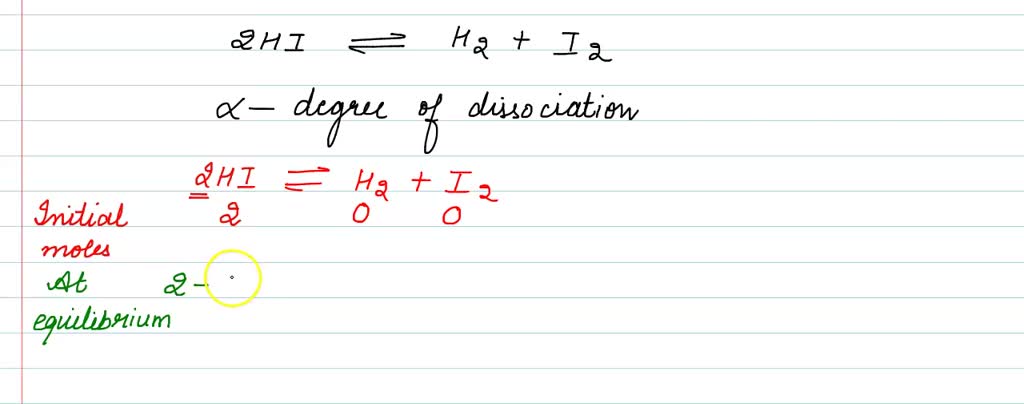 2HI ⇌ H2 + I2
α – degree of dissociation
2HI ⇌ H2 + I2
Initial moles 2 0 0
At equilibrium 2 -